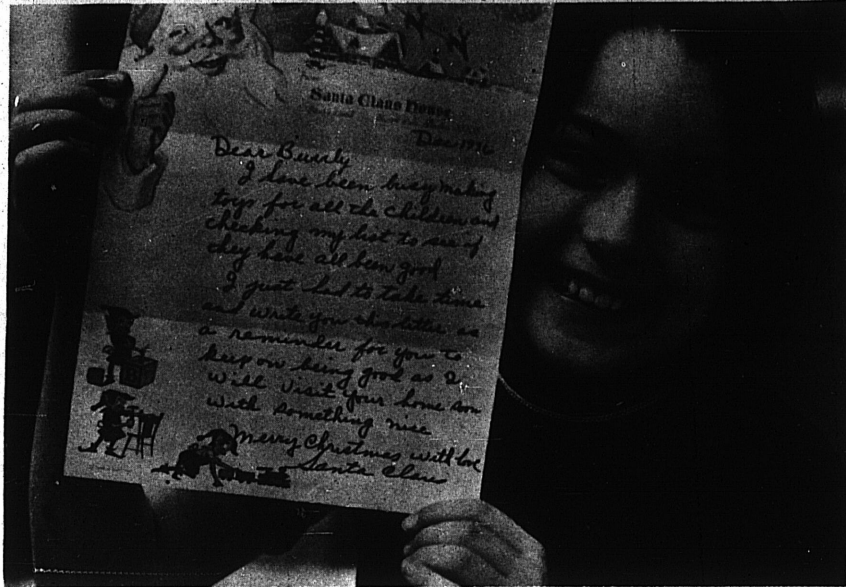 Santa Claus House
Dec 1976
Dear
I have been busy making
toys for all the children and
checking my list to see if
they have all been good
I just had to take time
and write you this letter as
a reminder for you to
keep on being good as I
will visit your home soon
with something nice
Merry Christmas with love
Santa Claus